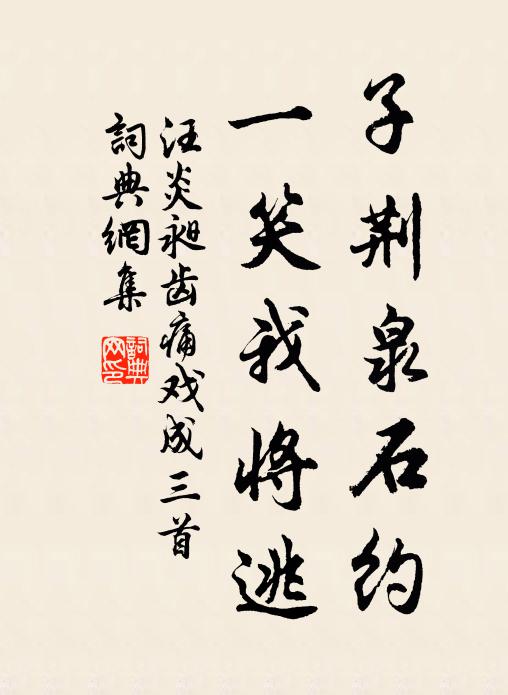 子荆泉石约
一笑我将逃
汪炎昶齿痛戏成三首
詞典網集
詞典网印